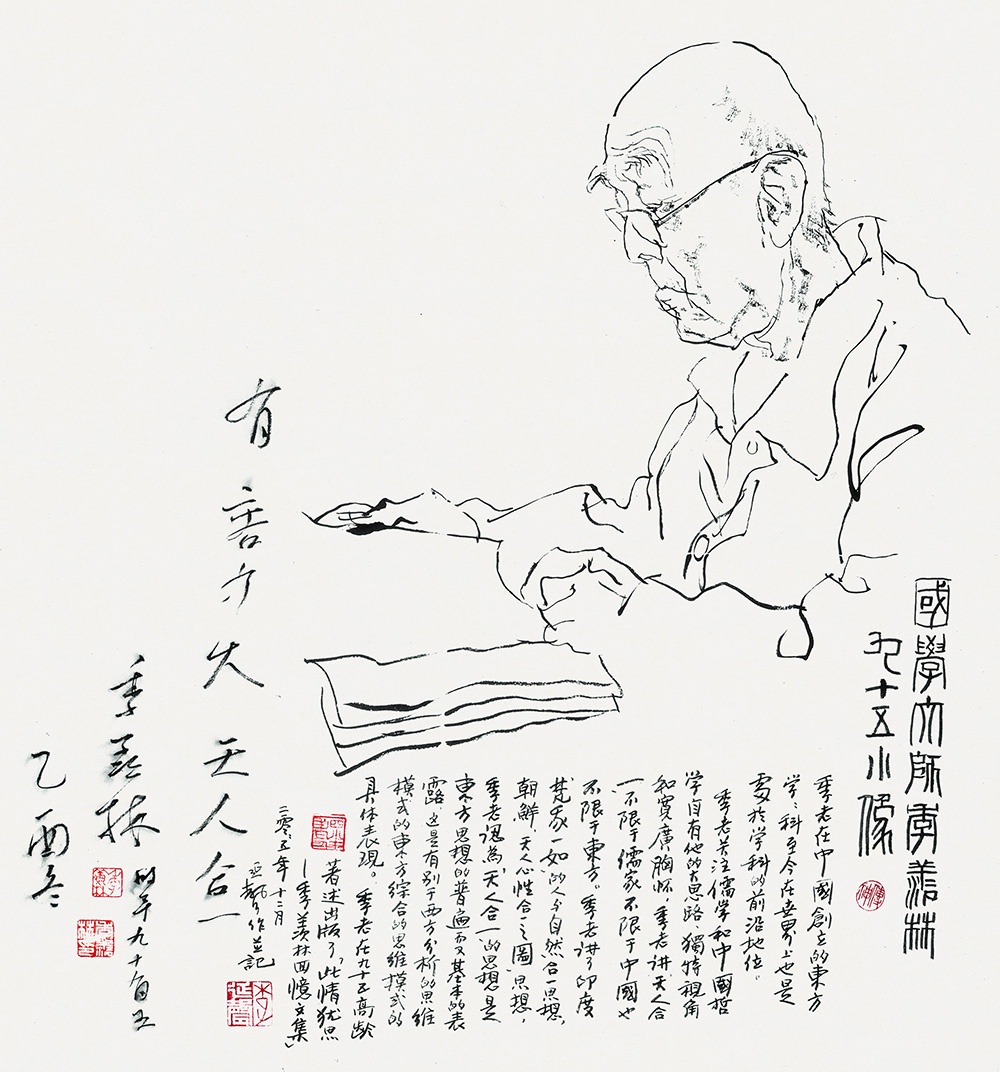 國學大師季羨林
九十五小像
季老在中國創立的東方
学学科至今在世界上也是
處於学科的前沿地位。
季老关注儒学和中國哲
学自有他的思路獨特視角
和寬廣胸怀,季老讲天人合
一不限于儒家不限于中國也
不限于东方。季老讲了印度
梵我一如的人与自然合一思想,
朝鮮天人心性合一之圖思想,
季老認為,天人合一的思想是
東方思想的普遍而又基本的表
露。这是有别于西方分析的思維
模式的東方綜合的思維模式的
具体表現。季老在九十五高齡
著述出版了「此情犹思
—季羨林回憶文集」
二零零五年十二月
作並記
有容乃大天人合一
季羨林 时年九十有五
乙酉冬